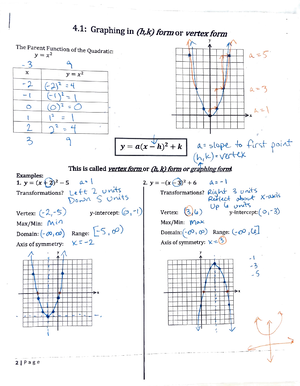 4.1: Graphing in (h,k) form or vertex form
The Parent Function of the Quadratic
y = x²
-3 9
x y = x²
-2 (-2)² = 4
-1 (-1)² = 1
0 (0)² = 0
1 1² = 1
2 2² = 4
3 9
a=5
a=3
a=1
y = a(x − h)² + k
a= slope to first point
(h,k)= vertex
This is called vertex form or (h, k) form or graphing form!
Examples:
1. y = (x + 2)² − 5 a=1
Transformations? Left 2 units
Down 5 units
Vertex: (-2,-5) y-intercept: (0,-1)
Max/Min: Min
Domain: (-∞,∞) Range: [-5,∞)
Axis of symmetry: x=-2
2. y = −(x − 3)² + 6 a=-1
Transformations? Right 3 units
Reflect about x-axis
Up 6 units
Vertex: (3,6) y-intercept: (0,-3)
Max/Min: Max
Domain: (-∞,∞) Range: (-∞,6]
Axis of symmetry: x=3
-1
-3
-5
2 | Page